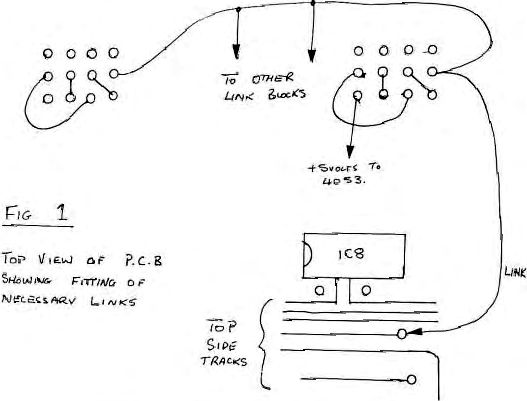 TO OTHER
LINK BLOCKS
+5VOLTS TO
4053.
FIG 1
TOP VIEW OF P.C.B
SHOWING FITTING OF
NECESSARY LINKS
IC8
LINK
TOP
SIDE
TRACKS